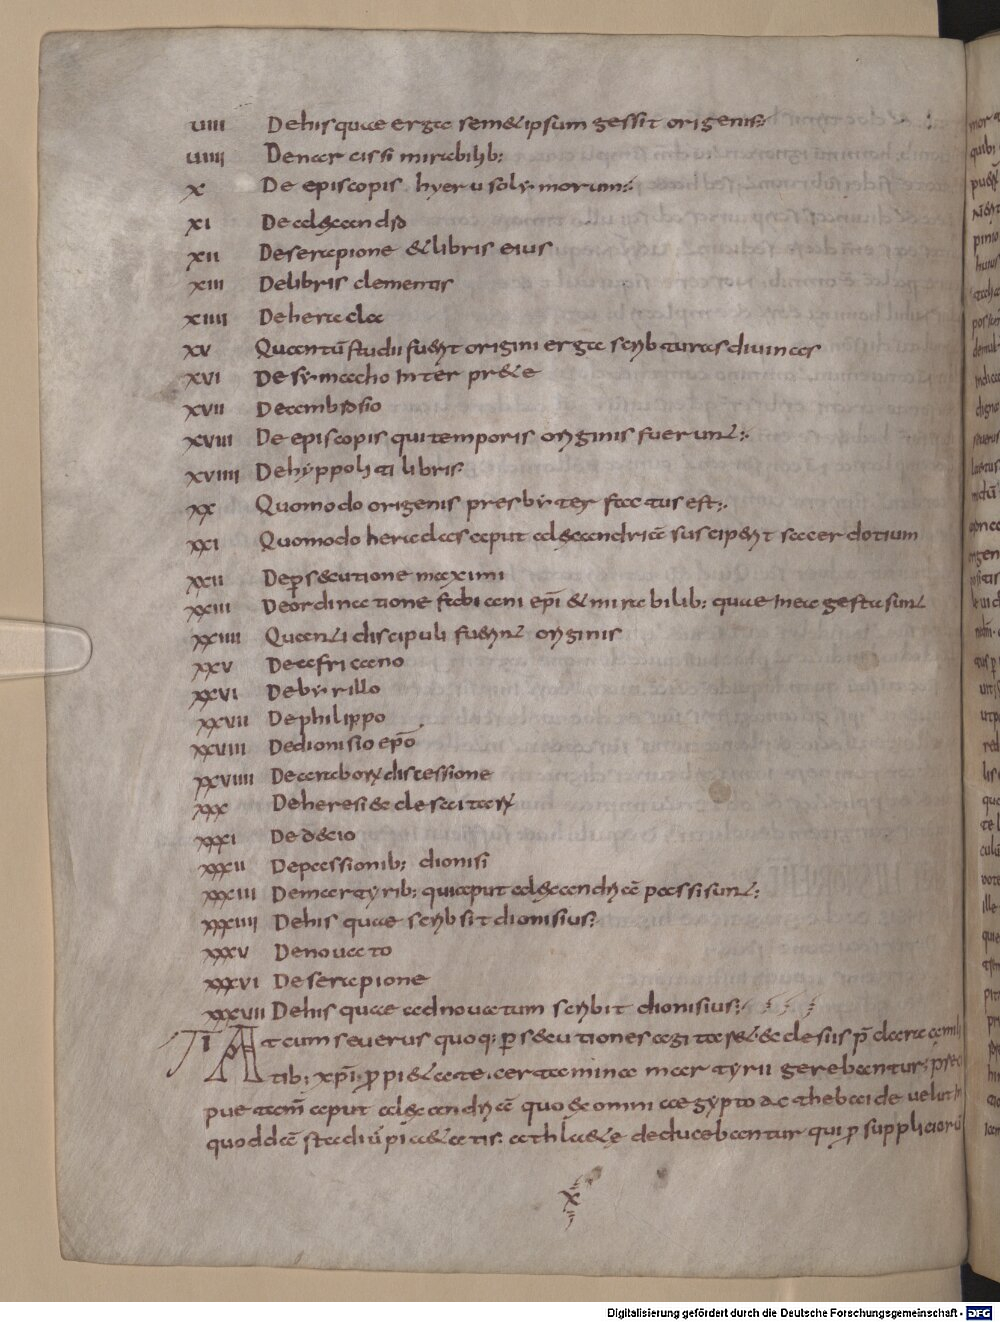 VIIII De his quae erga semetipsum gessit origenis
VIIII De narcissi mirabilib;
X De episcopis hyerusolymorum
XI De alexandro
XII De serapione & libris eius
XIII De libris clementis
XIIII De heracla
XV Quantū studii fuerit origini erga scribturas diuinas
XVI De symacho interpr&e
XVII De ambrosio
XVIII De episcopis qui temporis originis fuerunt
XVIIII De hyppoliti libris
XX Quomodo origenis presbyter factus est
XXI Quomodo heraclas aput alexandriā susciperit sacerdotium
XXII De persecutione maximi
XXIII De ordinatione fabiani ep̄i & mirabilib; quae in ea gesta sunt
XXIIII Quanti discipuli fuerint originis
XXV De africano
XXVI De byrillo
XXVII De philippo
XXVIII De dionisio ep̄o
XXVIIII De araborum discessione
XXX De heresi &clesaitarum
XXXI De decio
XXXII De passionib; dionisi
XXXIII De martyrib; qui aput alexandriā passi sunt
XXXIIII De his quae scribsit dionisius
XXXV De nouato
XXXVI De serapione
XXXVII De his quae ad nouatum scribit dionisius
I At cum seuerus quoq; persecutiones agitass& &clesiis p̄ claraa mili
tib; xp̄i pro pi&ate certamina martyrii gerebantur
pue tam̄ aput alexandriā quo ex omni aegypto ac thebaide uelut
quoddā stadiū pi&atis athl&e ducebantur qui p supplicior
X
Digitalisierung gefördert durch die Deutsche Forschungsgemeinschaft - DFG